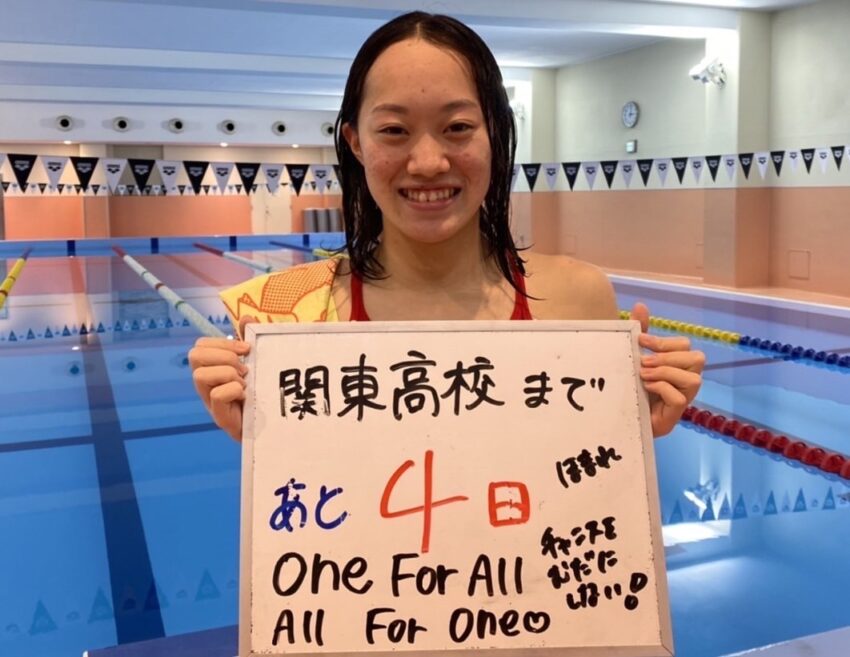 関東高校 まで
あと 4日
ほまれ
One For All
All For One♡
チャンスを
むだに
しない!